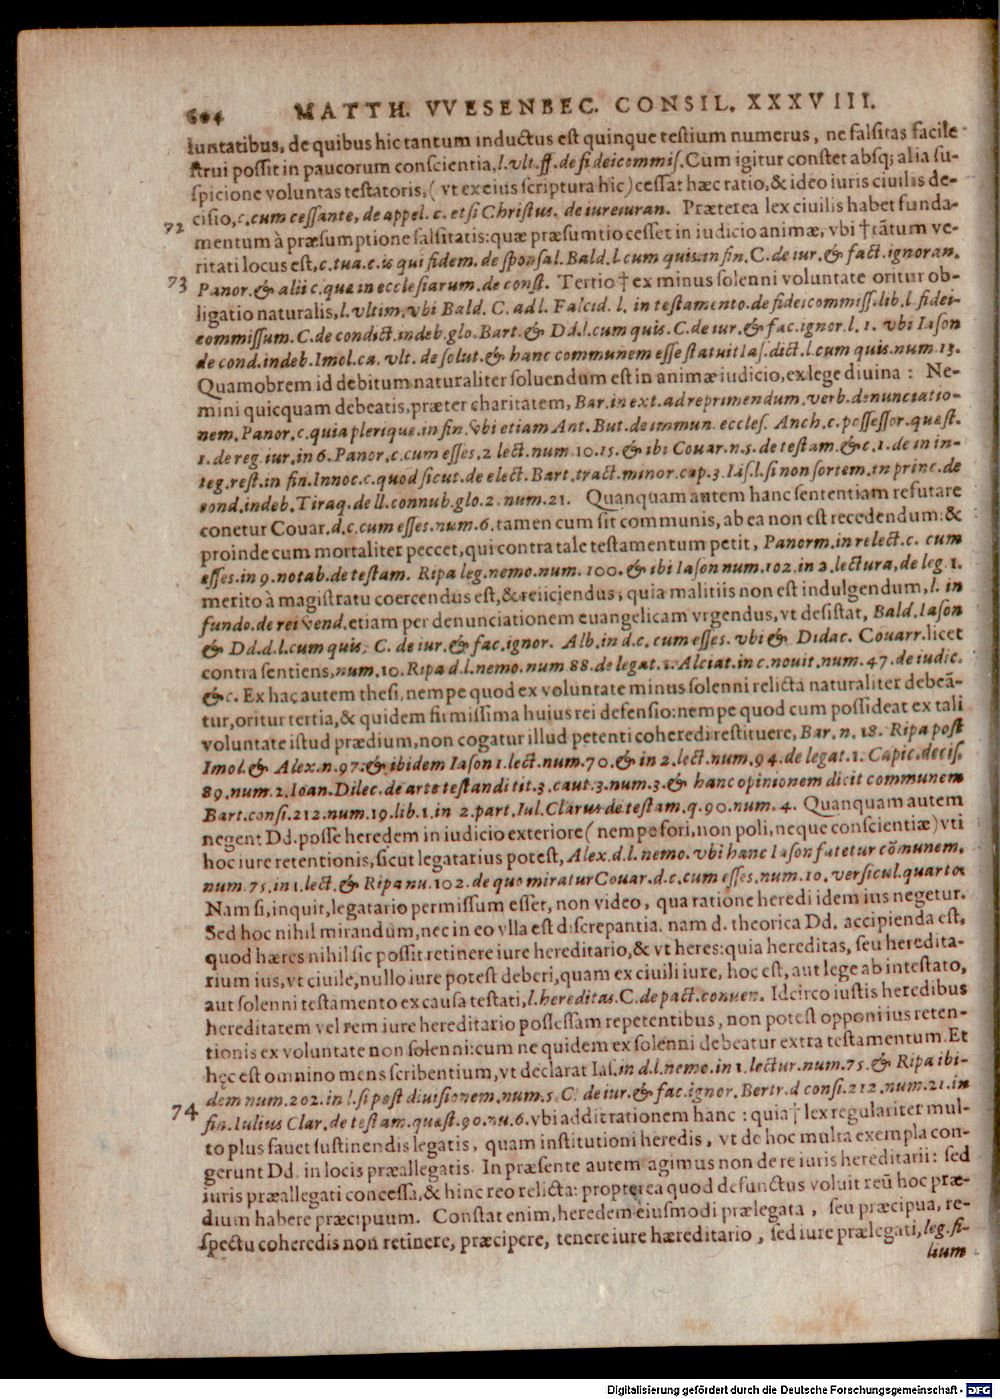 604 MATTH. VVESENBEC. CONSIL. XXXVIII.
luntatibus, de quibus hic tantum inductus est quinque testium numerus, ne falsitas facile
strui possit in paucorum conscientia, l. vlt. ff. de fideicommis. Cum igitur constet absq; alia su-
spicione voluntas testatoris, (vt ex eius scriptura hic) cessat hæc ratio, & ideo iuris ciuilis de-
cisio, c. cum cessante, de appel. c. etsi Christus. de iureiuran. Præterea lex ciuilis habet funda-
72 mentum à præsumptione falsitatis: quæ præsumtio cesset in iudicio animæ, vbi † tãtum ve-
ritati locus est, c. tua. c. is qui fidem. de sponsal. Bald. l. cum quis. in fin. C. de iur. & fact. ignoran.
73 Panor. & alii c. que in ecclesiarum. de const. Tertio † ex minus solenni voluntate oritur ob-
ligatio naturalis, l. vltim. vbi Bald. C. ad l. Falcid. l. in testamento. de fideicommiss. lib. l. fidei-
commissum. C. de condict. indeb. glo. Bart. & Dd. l. cum quis. C. de iur. & fac. ignor. l. 1. vbi Iason
de cond. indeb. Imol. ca. vlt. de solut. & hanc communem esse statuit Ias. dict. l. cum quis. num. 13.
Quamobrem id debitum naturaliter soluendum est in animæ iudicio, ex lege diuina: Ne-
mini quicquam debeatis, præter charitatem, Bar. in ext. ad reprimendum. verb. denunciatio-
nem. Panor. c. quia plerique. in fin. vbi etiam Ant. But. de immun. eccles. Anch. c. possessor. quæst.
1. de reg. iur. in 6. Panor. c. cum esses. 2 lect. num. 10. 15. & ibi Couar. n. 5. de testam. & c. 1. de in in-
teg. rest. in fin. Innoc. c. quod sicut. de elect. Bart. tract. minor. cap. 3. Ias. l. si non sortem. in princ. de
cond. indeb. Tiraq. de ll. connub. glo. 2. num. 21. Quanquam autem hanc sententiam refutare
conetur Couar. d. c. cum esses. num. 6. tamen cum sit communis, ab ea non est recedendum: &
proinde cum mortaliter peccet, qui contra tale testamentum petit, Panorm. in relect. c. cum
esses. in 9. notab. de testam. Ripa leg. nemo. num. 100. & ibi Iason num. 102. in 2. lectura, de leg. 1.
merito à magistratu coercendus est, & reiiciendus, quia malitiis non est indulgendum, l. in
fundo. de rei vend. etiam per denunciationem euangelicam vrgendus, vt desistat, Bald. Iason
& Dd. d. l. cum quis. C. de iur. & fac. ignor. Alb. in d. c. cum esses. vbi & Didac. Couarr. licet
contra sentiens, num. 10. Ripa d. l. nemo. num. 88. de legat. 1. Alciat. in c. nouit. num. 47. de iudic.
& c. Ex hac autem thesi, nempe quod ex voluntate minus solenni relicta naturaliter debeã-
tur, oritur tertia, & quidem firmissima huius rei defensio: nempe quod cum possideat ex tali
voluntate istud prædium, non cogatur illud petenti coheredi restituere, Bar. n. 18. Ripa post
Imol. & Alex. n. 97. & ibidem Iason 1. lect. num. 70. & in 2. lect. num. 94. de legat. 1. Capic. decis.
89. num. 2. Ioan. Dilec. de arte testandi tit. 3. caut. 3. num. 3. & hanc opinionem dicit communem
Bart. consi. 212. num. 19. lib. 1. in 2. part. Iul. Clarus de testam. q. 90. num. 4. Quanquam autem
negent Dd. posse heredem in iudicio exteriore (nempe fori, non poli, neque conscientiæ) vti
hoc iure retentionis, sicut legatarius potest, Alex. d. l. nemo. vbi hanc Iason fatetur cõmunem.
num. 75. in 1. lect. & Ripa nu. 102. de quo miratur Couar. d. c. cum esses. num. 10. versicul. quarto.
Nam si, inquit, legatario permissum esset, non video, qua ratione heredi idem ius negetur.
Sed hoc nihil mirandum, nec in eo vlla est discrepantia. nam d. theorica Dd. accipienda est,
quod hæres nihil sic possit retinere iure hereditario, & vt heres: quia hereditas, seu heredita-
rium ius, vt ciuile, nullo iure potest deberi, quam ex ciuili iure, hoc est, aut lege ab intestato,
aut solenni testamento ex causa testati, l. hereditas. C. de pact. conuen. Idcirco iustis heredibus
hereditatem vel rem iure hereditario possessam repetentibus, non potest opponi ius reten-
tionis ex voluntate non solenni: cum ne quidem ex solenni debeatur extra testamentum. Et
hęc est omnino mens scribentium, vt declarat Ias. in d. l. nemo. in 1. lectur. num. 75. & Ripa ibi-
dem num. 202. in l. si post diuisionem. num. 5. C. de iur. & fac. ignor. Bertr. d consi. 212. num. 21. in
74 fin. Iulius Clar. de testam. quæst. 90. nu. 6. vbi addit rationem hanc: quia † lex regulariter mul-
to plus fauet sustinendis legatis, quam institutioni heredis, vt de hoc multa exempla con-
gerunt Dd. in locis præallegatis. In præsente autem agimus non de re iuris hereditarii: sed
iuris præallegati concessa, & hinc reo relicta: propterea quod defunctus voluit reũ hoc præ-
dium habere præcipuum. Constat enim, heredem eiusmodi prælegata, seu præcipua, re-
spectu coheredis non retinere, præcipere, tenere iure hæreditario, sed iure prælegati, leg. fi-
lium
Digitalisierung gefördert durch die Deutsche Forschungsgemeinschaft - DFG